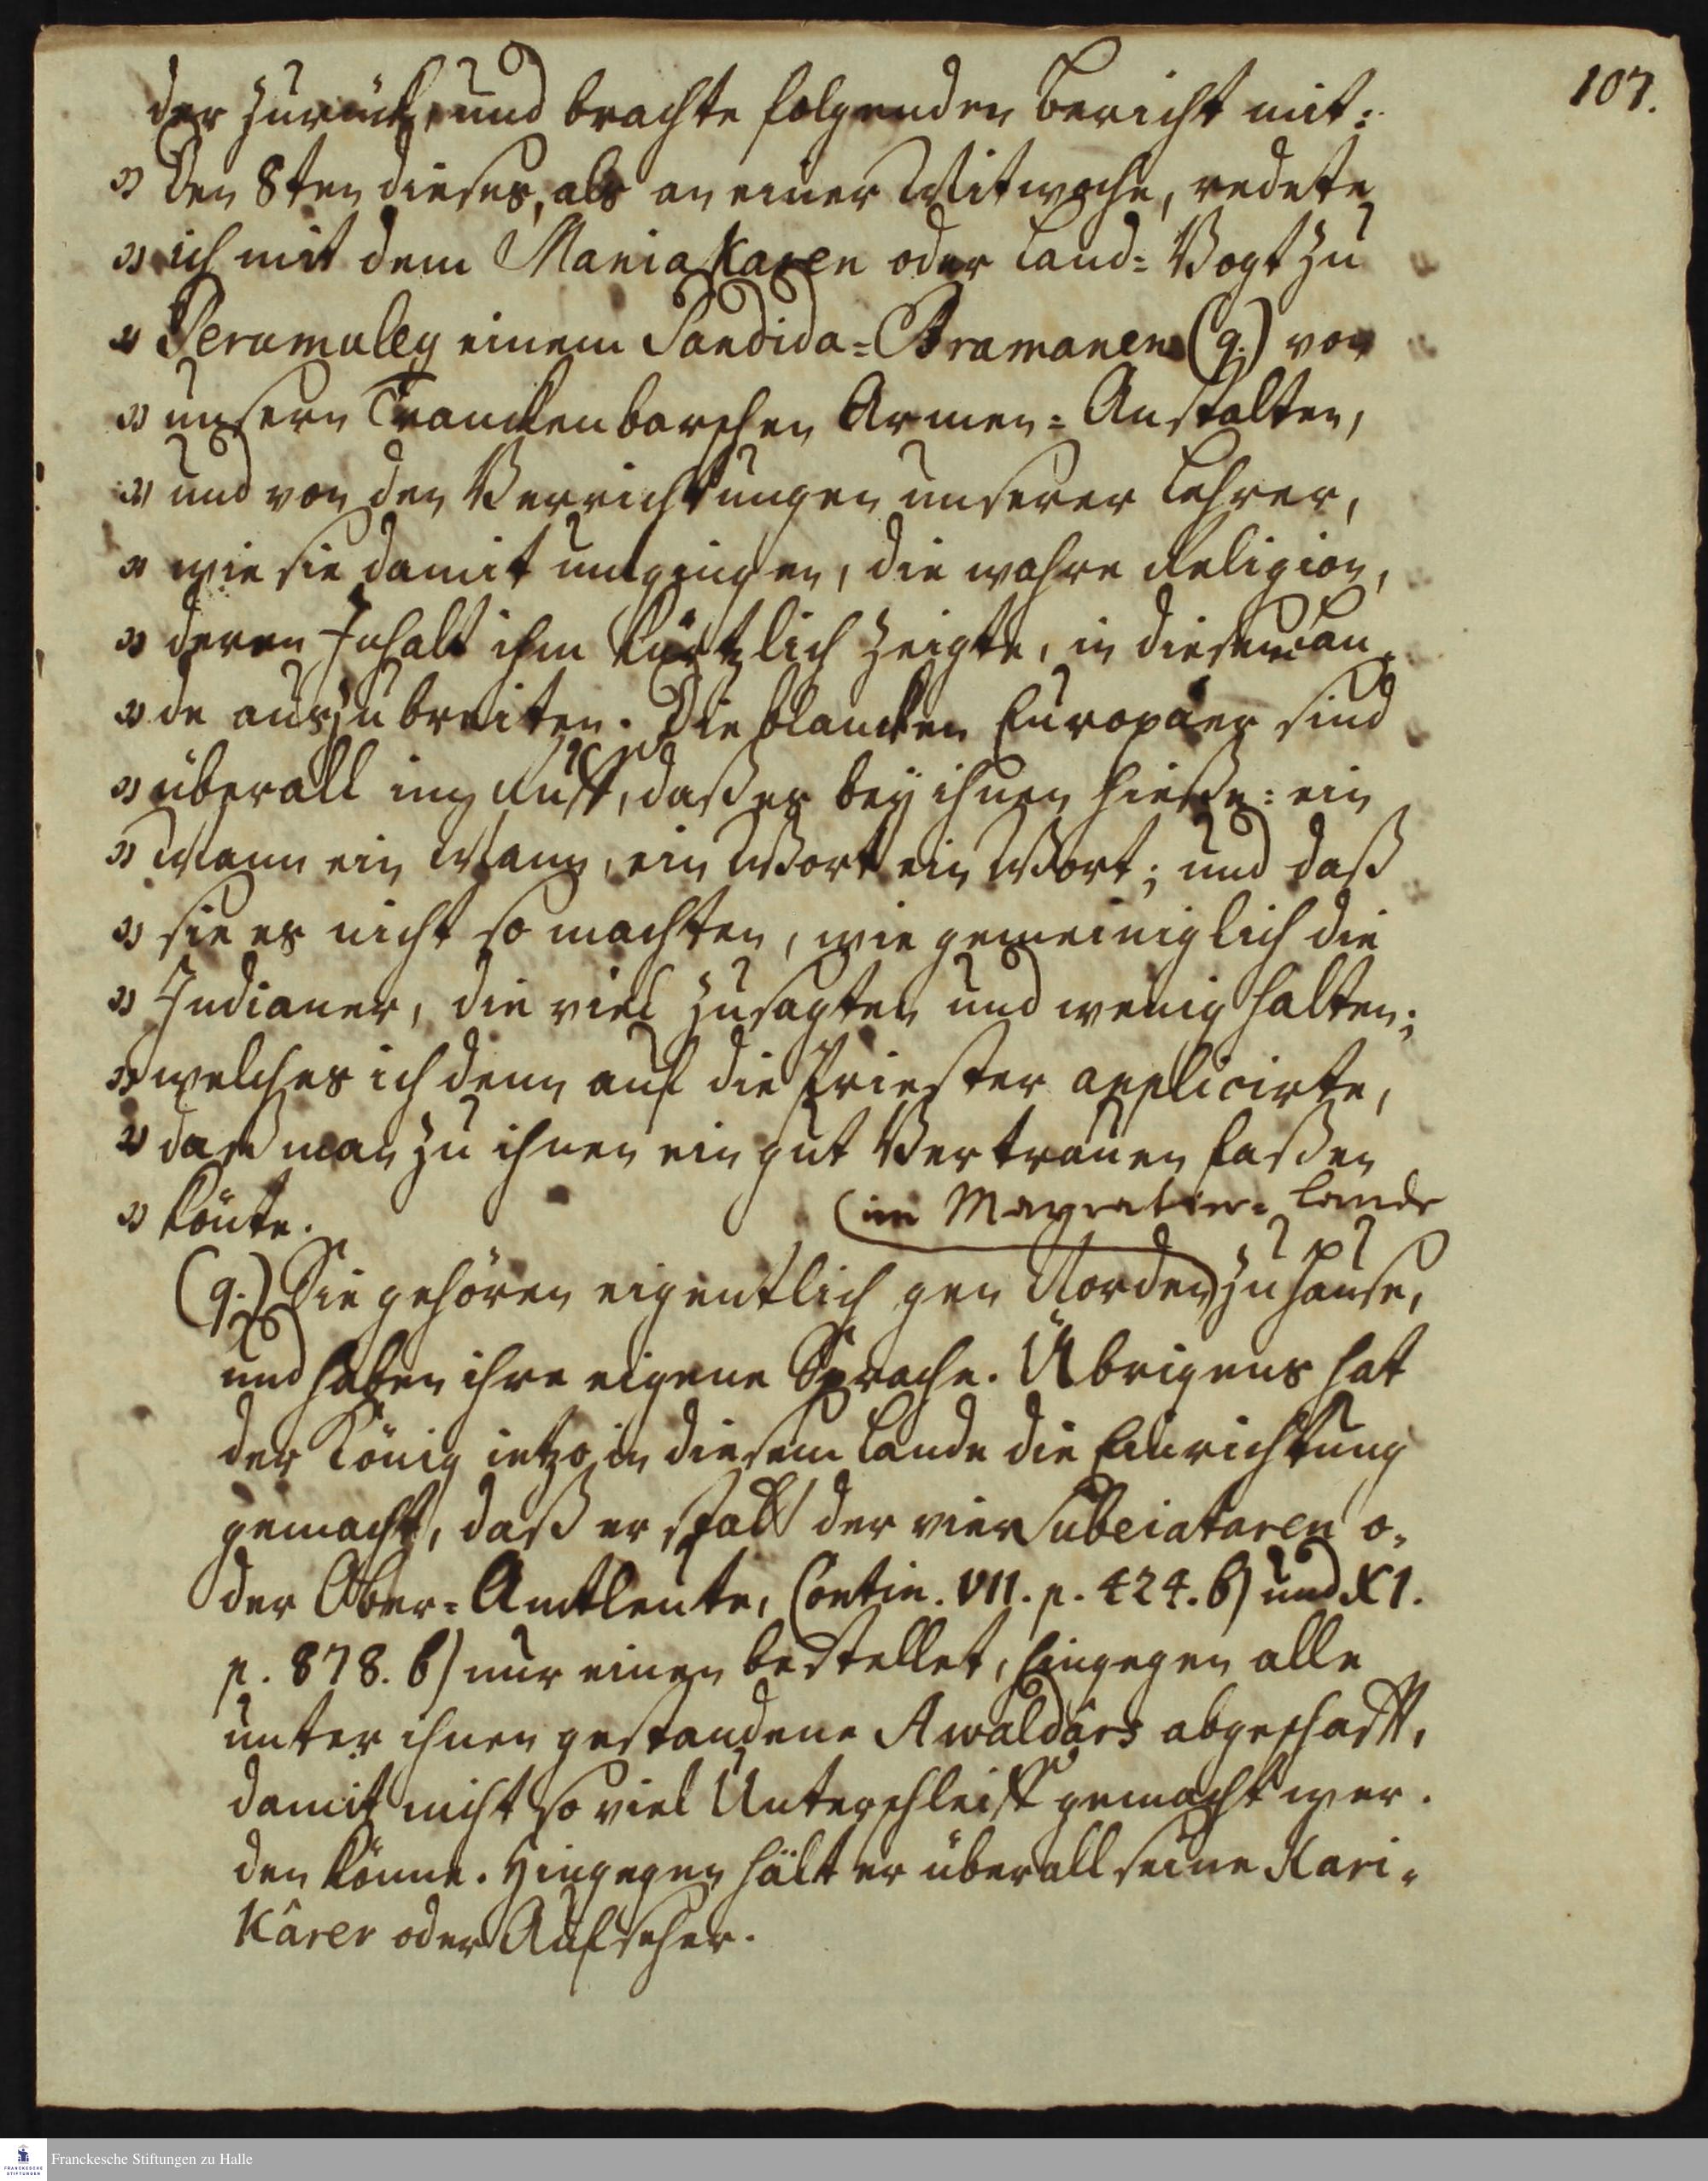 107.
der zurück, und brachte folgenden Bericht mit:
" Den 8ten dieses, als an einer Mitwoche, redete
" ich mit dem Maniakaren oder Land-Vogt zu
" Perumuley einem Pandida-Bramanen (q.) von
" unsern Tranckenbarschen Armen-Anstalten,
" und von den Verrichtungen unserer Lehrer,
" wie sie damit umgingen, die wahre Religion,
" deren Inhalt ihm kürtzlich zeigte, in diesem Lan-
" de auszubreiten. Die blancken Europäer sind
" überall im Ruff, daß es bey ihnen hieße: ein
" Mann ein Mann, ein Wort ein Wort; und daß
" sie es nicht so machten, wie gemeiniglich die
" Indianer, die viel zusagten und wenig halten;
" welches ich denn auf die Priester applicirte,
" daß man zu ihnen ein gut Vertrauen faßen
" könte.
(im Marratier-Lande
(q.) Sie gehören eigentlich gen Norden) zu Hause,
und haben ihre eigene Sprache. Übrigens hat
der König ietzo in diesem Lande die Einrichtung
gemacht, daß er statt der vier Subeiataren o-
der Ober-Amtleute, Contin. VII. p. 424. b) und XI.
p. 878. b) nur einen bestellet, hingegen alle
unter ihnen gestandene Awaldârs abgeschafft,
damit nicht so viel Unterschleiff gemacht wer-
den könne. Hingegen hält er überall seine Kari-
Kârer oder Aufseher.
Franckesche Stiftungen zu Halle
FRANCKESCHE
STIFTUNGEN